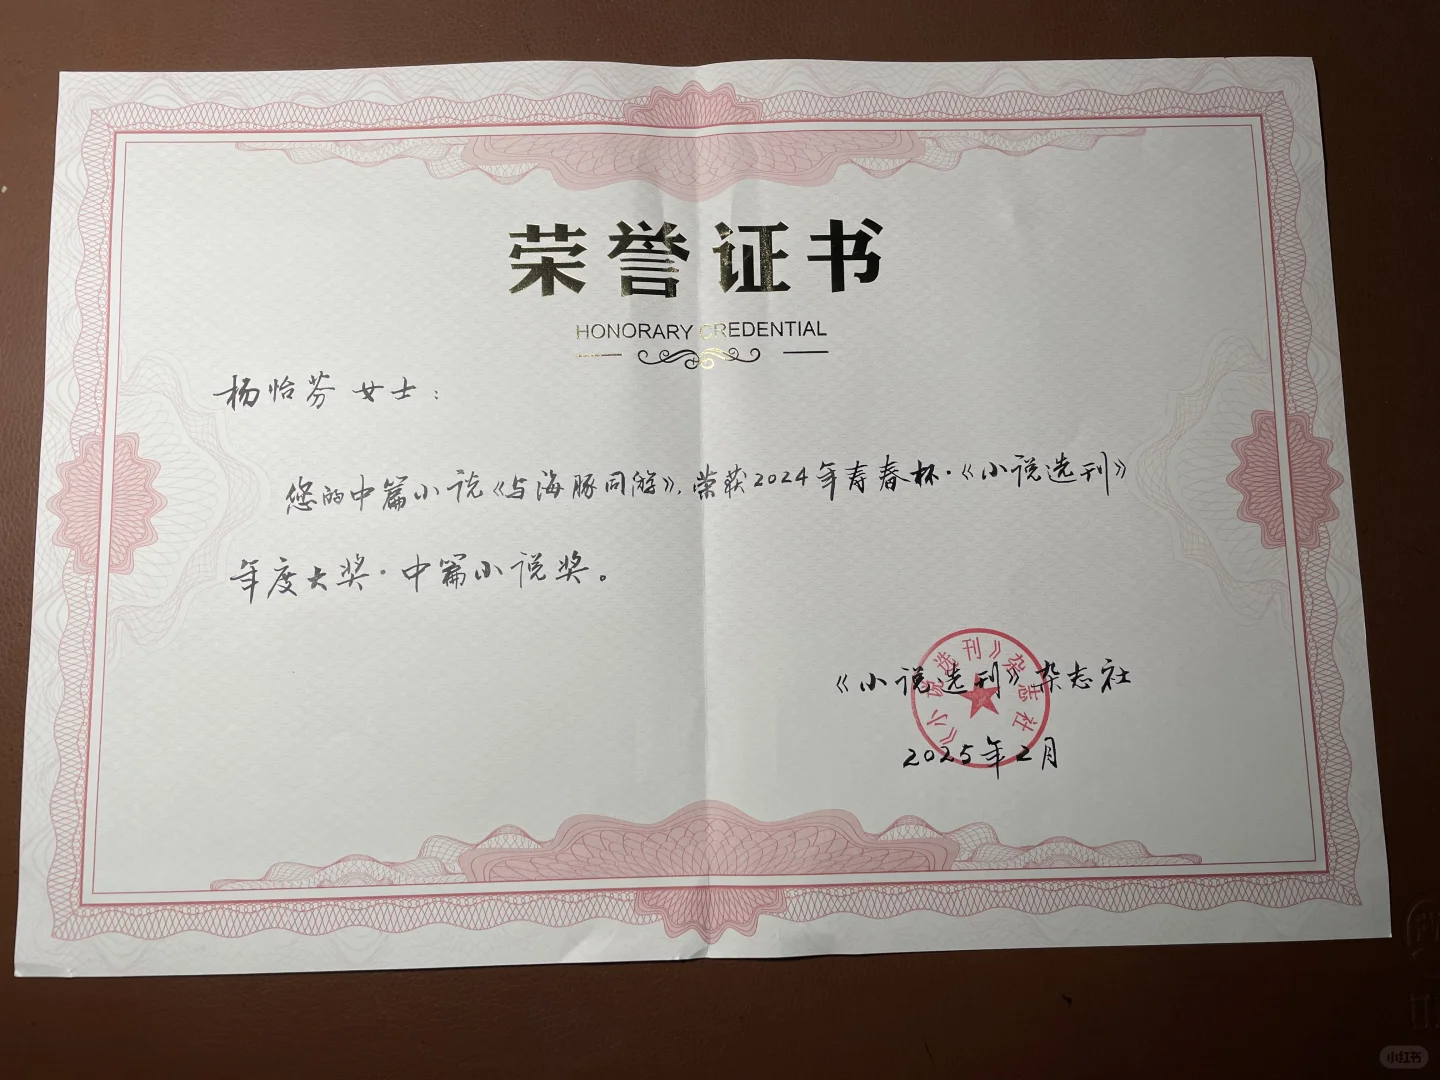 荣誉证书
HONORARY CREDENTIAL
杨怡芬女士：
您的中篇小说《与海豚同游》，荣获2024年寿春杯·《小说选刊》
年度大奖·中篇小说奖。
《小说选刊》杂志社
《小说选刊》杂志社
2025年2月
小红书